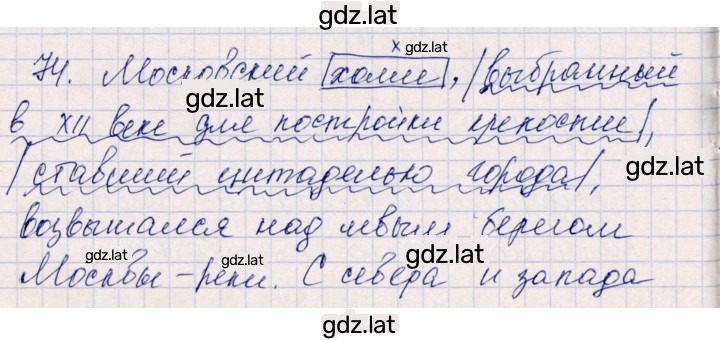 gdz.lat
х gdz.lat
74. Московский холм, выбранный
gdz.lat
в XII веке для постройки крепости,
ставший цитаделью города,
gdz.lat
возвышался над левым берегом
gdz.lat gdz.lat
Москвы-реки. С севера и запада
gdz.lat